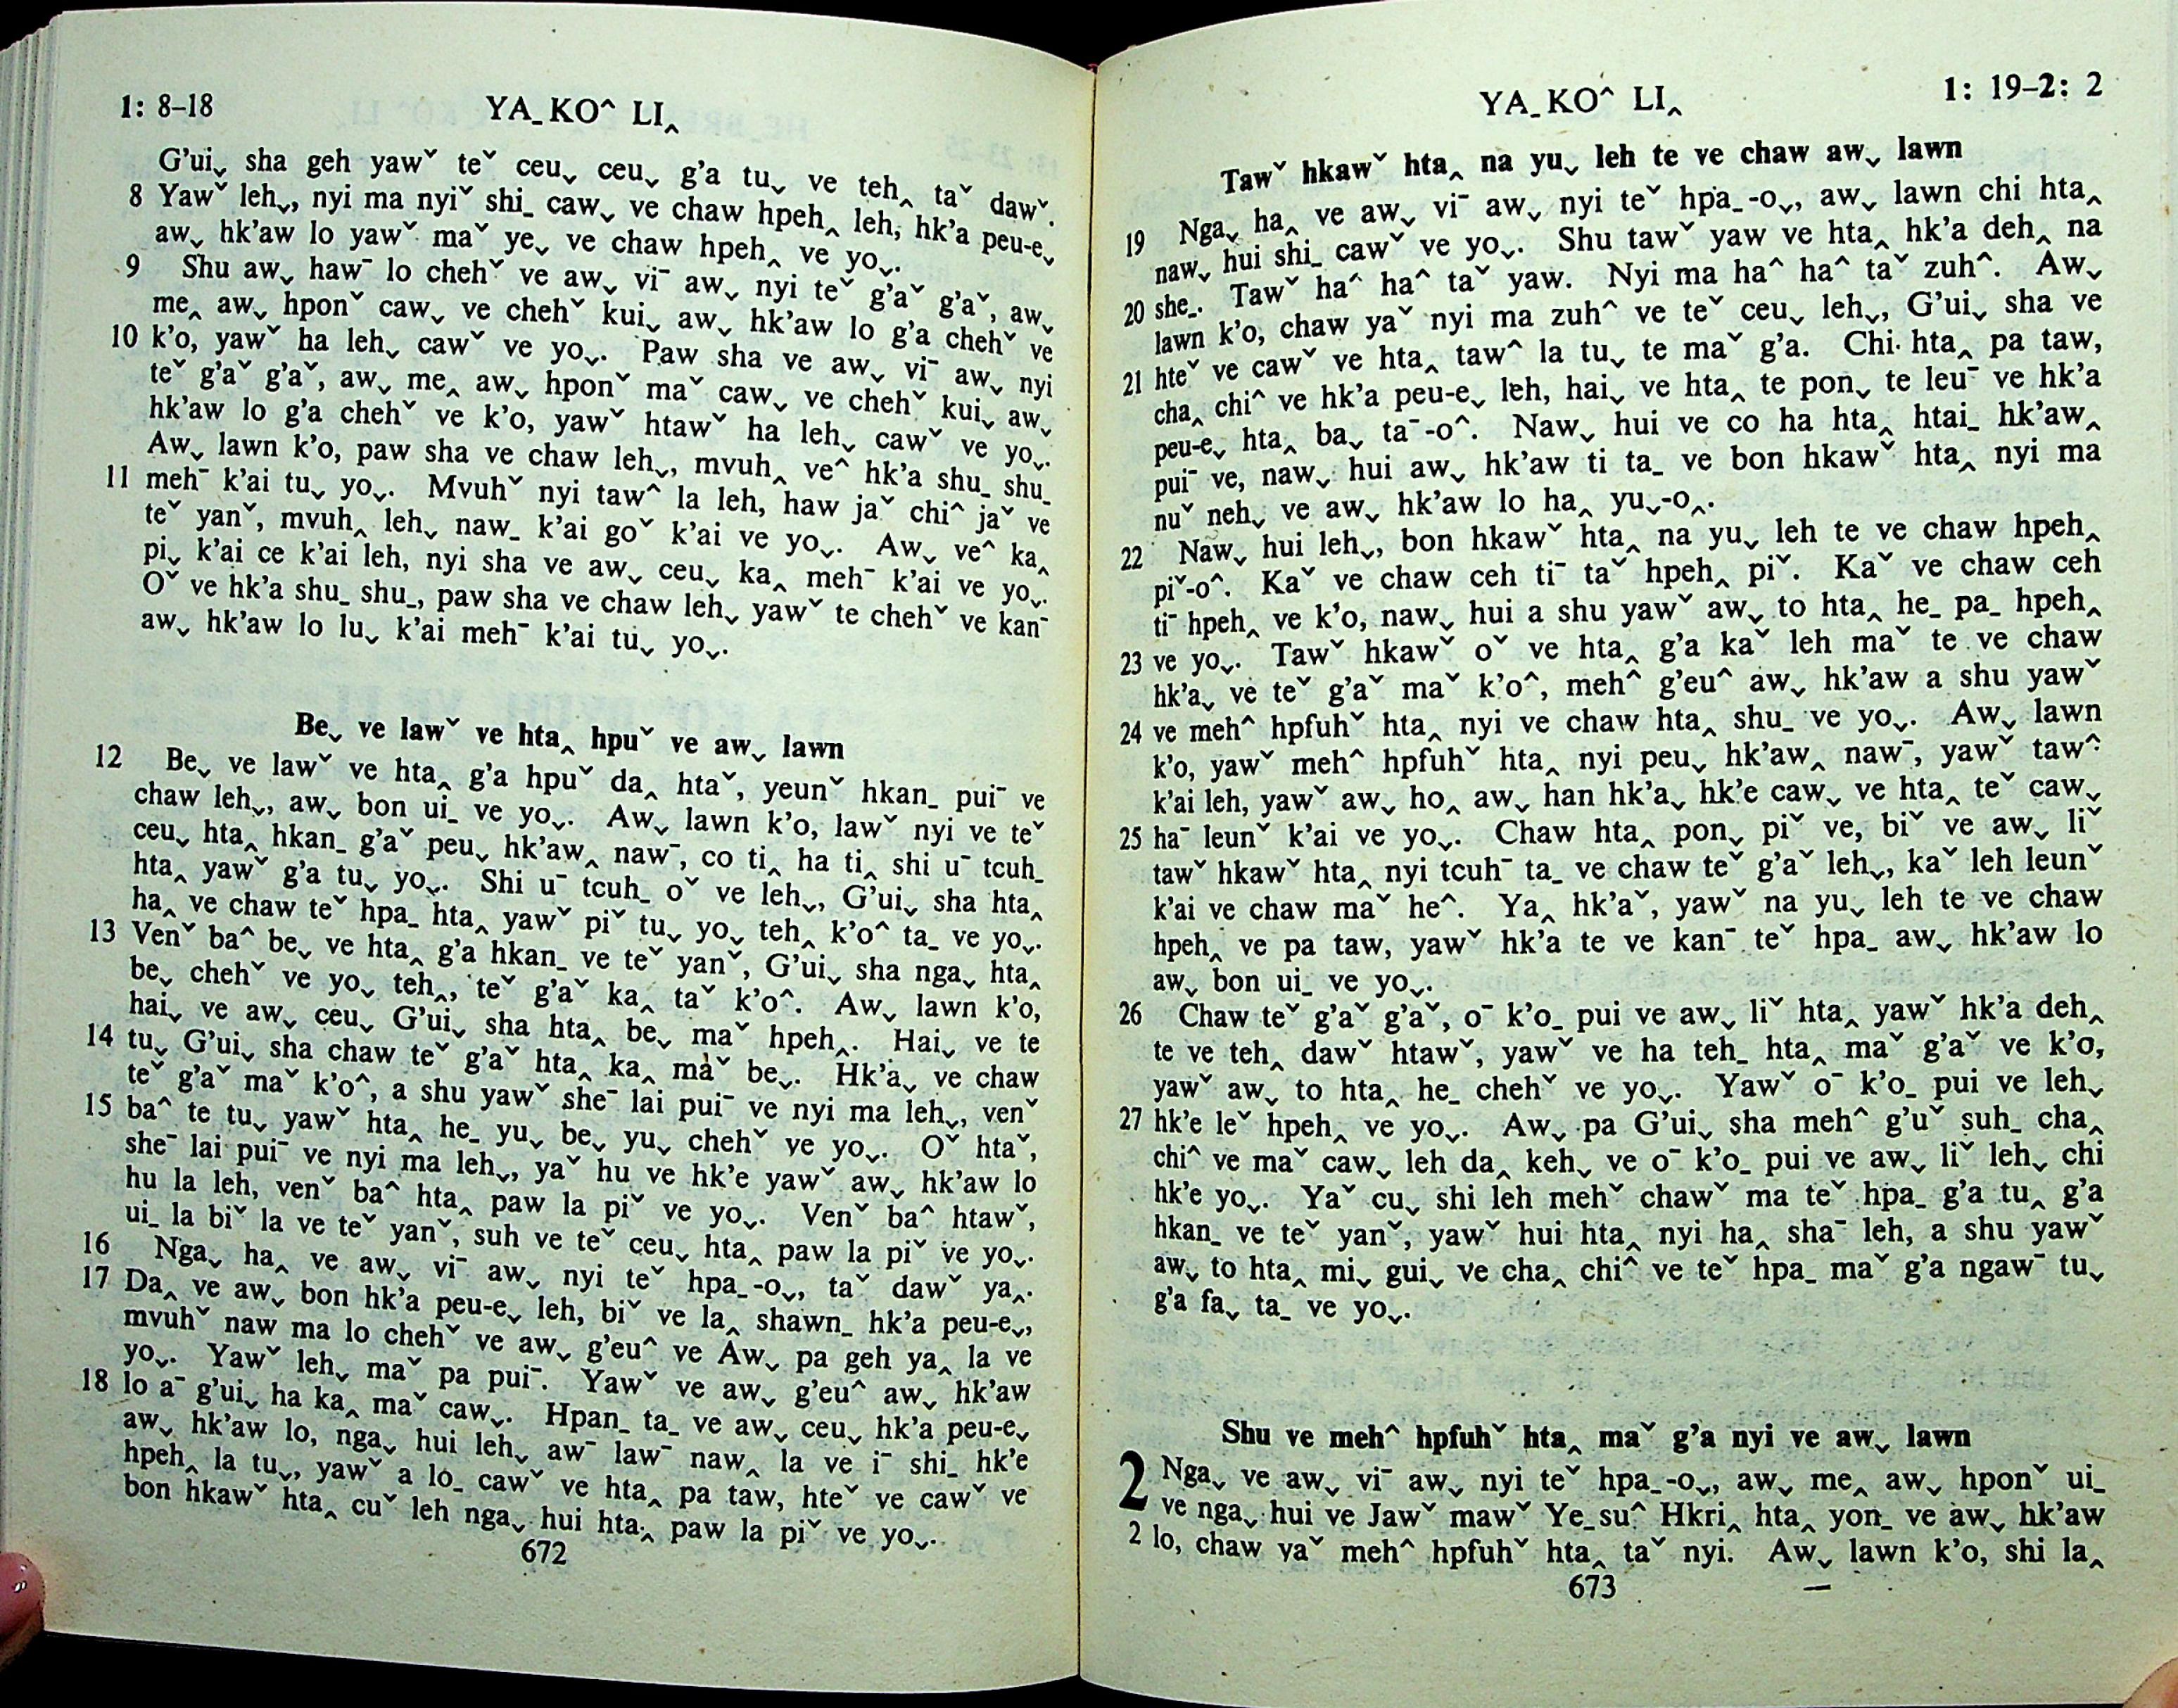 1: 8–18
YA_ KO^ LI‸
G’uiˬ sha geh yawˇ teˇ ceuˬ ceuˬ g’a tuˬ ve teh‸ taˇ dawˇ.
8 Yawˇ lehˬ, nyi ma nyiˇ shi_ cawˬ ve chaw hpeh‸ leh, hk’a peu-eˬ
awˬ hk’aw lo yawˇ maˇ yeˬ ve chaw hpeh‸ ve yoˬ.
9 Shu awˬ hawˉ lo chehˇ ve awˬ viˉ awˬ nyi teˇ g’aˇ g’aˇ, awˬ
me‸ awˬ hponˇ cawˬ ve chehˇ kuiˬ awˬ hk’aw lo g’a chehˇ ve
10 k’o, yawˇ ha lehˬ cawˇ ve yoˬ. Paw sha ve awˬ viˉ awˬ nyi
teˇ g’aˇ g’aˇ, awˬ me‸ awˬ hponˇ maˇ cawˬ ve chehˇ kuiˬ awˬ
hk’aw lo g’a chehˇ ve k’o, yawˇ htawˇ ha lehˬ cawˇ ve yoˬ.
Awˬ lawn k’o, paw sha ve chaw lehˬ, mvuh‸ ve^ hk’a shu_ shu_
11 mehˉ k’ai tuˬ yoˬ. Mvuhˇ nyi taw^ la leh, haw jaˇ chi^ jaˇ ve
teˇ yanˇ, mvuh‸ lehˬ naw_ k’ai goˇ k’ai ve yoˬ. Awˬ ve^ ka‸
piˬ k’ai ce k’ai leh, nyi sha ve awˬ ceuˬ ka‸ mehˉ k’ai ve yoˬ.
Oˇ ve hk’a shu_ shu_, paw sha ve chaw lehˬ yawˇ te chehˇ ve kanˉ
awˬ hk’aw lo luˬ k’ai mehˉ k’ai tuˬ yoˬ.
Beˬ ve lawˇ ve hta‸ hpuˇ ve awˬ lawn
12 Beˬ ve lawˇ ve hta‸ g’a hpuˇ da‸ htaˇ, yeunˇ hkan_ puiˉ ve
chaw lehˬ, awˬ bon ui_ ve yoˬ. Awˬ lawn k’o, lawˇ nyi ve teˇ
ceuˬ hta‸ hkan_ g’aˇ peuˬ hk’aw‸ nawˉ, co ti‸ ha ti‸ shi uˉ tcuh_
hta‸ yawˇ g’a tuˬ yoˬ. Shi uˉ tcuh_ oˇ ve lehˬ, G’uiˬ sha hta‸
ha‸ ve chaw teˇ hpa_ hta‸ yawˇ piˇ tuˬ yoˬ teh‸ k’o^ ta_ ve yoˬ.
13 Venˇ ba^ beˬ ve hta‸ g’a hkan_ ve teˇ yanˇ, G’uiˬ sha ngaˬ hta‸
beˬ chehˇ ve yoˬ teh‸, teˇ g’aˇ ka‸ taˇ k’o^. Awˬ lawn k’o,
haiˬ ve awˬ ceuˬ G’uiˬ sha hta‸ beˬ maˇ hpeh‸. Haiˬ ve te
14 tuˬ G’uiˬ sha chaw teˇ g’aˇ hta‸ ka‸ maˇ beˬ. Hk’aˬ ve chaw
teˇ g’aˇ maˇ k’o^, a shu yawˇ sheˉ lai puiˉ ve nyi ma lehˬ, venˇ
15 ba^ te tuˬ yawˇ hta‸ he_ yuˬ beˬ yuˬ chehˇ ve yoˬ. Oˇ htaˇ,
sheˉ lai puiˉ ve nyi ma lehˬ, yaˇ hu ve hk’e yawˇ awˬ hk’aw lo
hu la leh, venˇ ba^ hta‸ paw la piˇ ve yoˬ. Venˇ ba^ htawˇ,
ui_ la biˇ la ve teˇ yanˇ, suh ve teˇ ceuˬ hta‸ paw la piˇ ve yoˬ.
16 Ngaˬ ha‸ ve awˬ viˉ awˬ nyi teˇ hpa_-oˬ, taˇ dawˇ ya‸.
17 Da‸ ve awˬ bon hk’a peu-eˬ leh, biˇ ve la‸ shawn_ hk’a peu-eˬ,
mvuhˇ naw ma lo chehˇ ve awˬ g’eu^ ve Awˬ pa geh ya‸ la ve
yoˬ. Yawˇ lehˬ maˇ pa puiˉ. Yawˇ ve awˬ g’eu^ awˬ hk’aw
18 lo aˉ g’uiˬ ha ka‸ maˇ cawˬ. Hpan_ ta_ ve awˬ ceuˬ hk’a peu-eˬ
awˬ hk’aw lo, ngaˬ hui lehˬ awˉ lawˉ naw‸ la ve iˉ shi_ hk’e
hpeh‸ la tuˬ, yawˇ a lo_ cawˇ ve hta‸ pa taw, hteˇ ve cawˇ ve
bon hkawˇ hta‸ cuˇ leh ngaˬ hui hta‸ paw la piˇ ve yoˬ.
672
YA_ KO^ LI‸
1: 19–2: 2
Tawˇ hkawˇ hta‸ na yuˬ leh te ve chaw awˬ lawn
19 Ngaˬ ha‸ ve awˬ viˉ awˬ nyi teˇ hpa_-oˬ, awˬ lawn chi hta‸
nawˬ hui shi_ cawˇ ve yoˬ. Shu tawˇ yaw ve hta‸ hk’a deh‸ na
20 she_. Tawˇ ha^ ha^ taˇ yaw. Nyi ma ha^ ha^ taˇ zuh^. Awˬ
lawn k’o, chaw yaˇ nyi ma zuh^ ve teˇ ceuˬ lehˬ, G’uiˬ sha ve
21 hteˇ ve cawˇ ve hta‸ taw^ la tuˬ te maˇ g’a. Chi hta‸ pa taw,
cha‸ chi^ ve hk’a peu-eˬ leh, haiˬ ve hta‸ te ponˬ te leuˉ ve hk’a
peu-eˬ hta‸ baˬ taˉ-o^. Nawˬ hui ve co ha hta‸ htai_ hk’aw‸
puiˉ ve, nawˬ hui awˬ hk’aw ti ta_ ve bon hkawˇ hta‸ nyi ma
nuˇ nehˬ ve awˬ hk’aw lo ha‸ yuˬ-o‸.
22 Nawˬ hui lehˬ, bon hkawˇ hta‸ na yuˬ leh te ve chaw hpeh‸
piˇ-o^. Kaˇ ve chaw ceh tiˉ taˇ hpeh‸ piˇ. Kaˇ ve chaw ceh
tiˉ hpeh‸ ve k’o, nawˬ hui a shu yawˇ awˬ to hta‸ he_ pa_ hpeh‸
23 ve yoˬ. Tawˇ hkawˇ oˇ ve hta‸ g’a kaˇ leh maˇ te ve chaw
hk’aˬ ve teˇ g’aˇ maˇ k’o^, meh^ g’eu^ awˬ hk’aw a shu yawˇ
24 ve meh^ hpfuhˇ hta‸ nyi ve chaw hta‸ shu_ ve yoˬ. Awˬ lawn
k’o, yawˇ meh^ hpfuhˇ hta‸ nyi peuˬ hk’aw‸ nawˉ, yawˇ taw^
k’ai leh, yawˇ awˬ ho‸ awˬ han hk’aˬ hk’e cawˬ ve hta‸ teˇ cawˬ
25 haˉ leunˇ k’ai ve yoˬ. Chaw hta‸ ponˬ piˇ ve, biˇ ve awˬ liˇ
tawˇ hkawˇ hta‸ nyi tcuhˉ ta_ ve chaw teˇ g’aˇ lehˬ, kaˇ leh leunˇ
k’ai ve chaw maˇ he^. Ya‸ hk’aˇ, yawˇ na yuˬ leh te ve chaw
hpeh‸ ve pa taw, yawˇ hk’a te ve kanˉ teˇ hpa_ awˬ hk’aw lo
awˬ bon ui_ ve yoˬ.
26 Chaw teˇ g’aˇ g’aˇ, oˉ k’o_ pui ve awˬ liˇ hta‸ yawˇ hk’a deh‸
te ve teh‸ dawˇ htawˇ, yawˇ ve ha teh_ hta‸ maˇ g’aˇ ve k’o,
yawˇ awˬ to hta‸ he_ chehˇ ve yoˬ. Yawˇ oˉ k’o_ pui ve lehˬ
27 hk’e leˇ hpeh‸ ve yoˬ. Awˬ pa G’uiˬ sha meh^ g’uˇ suh_ cha‸
chi^ ve maˇ cawˬ leh da‸ kehˬ ve oˉ k’o_ pui ve awˬ liˇ lehˬ chi
hk’e yoˬ. Yaˇ cuˬ shi leh mehˇ chawˇ ma teˇ hpa_ g’a tu‸ g’a
hkan_ ve teˇ yanˇ, yawˇ hui hta‸ nyi ha‸ shaˉ leh, a shu yawˇ
awˬ to hta‸ miˬ guiˬ ve cha‸ chi^ ve teˇ hpa_ maˇ g’a ngawˉ tuˬ
g’a faˬ ta_ ve yoˬ.
Shu ve meh^ hpfuhˇ hta‸ maˇ g’a nyi ve awˬ lawn
2 Ngaˬ ve awˬ viˉ awˬ nyi teˇ hpa_-oˬ, awˬ me‸ awˬ hponˇ ui_
ve ngaˬ hui ve Jawˇ mawˇ Ye_su^ Hkri‸ hta‸ yon_ ve awˬ hk’aw
2 lo, chaw yaˇ meh^ hpfuhˇ hta‸ taˇ nyi. Awˬ lawn k’o, shi la‸
673